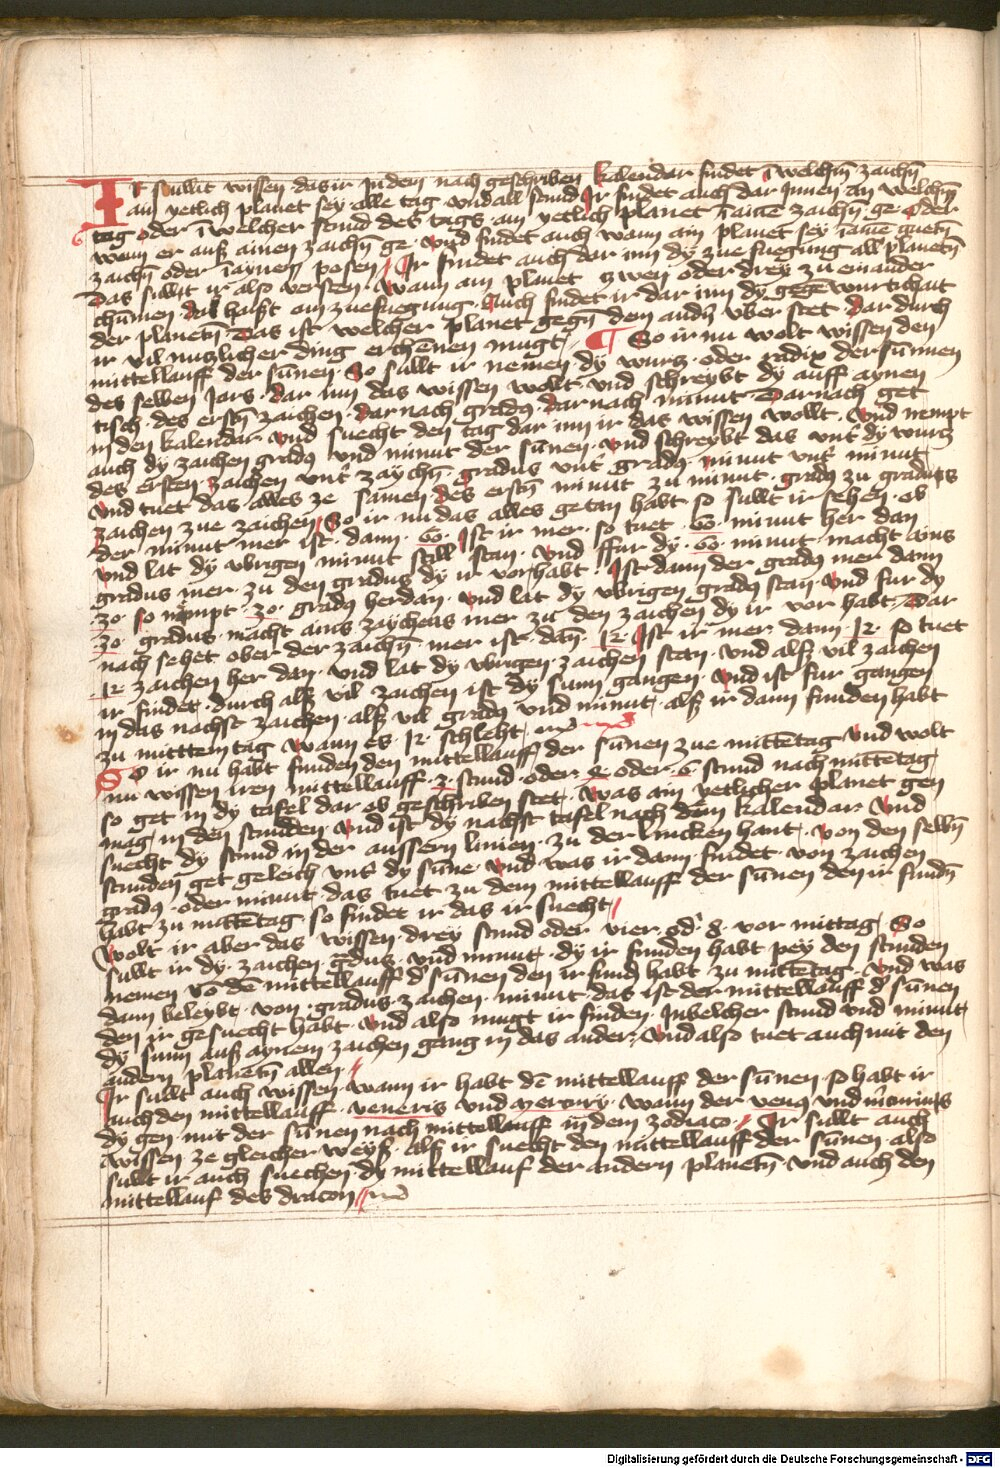 Ir sullt wissen das ir in dem nach geschriben kalendar findet ī welchm̄ zaichn̄
ain yetlich planet sey alle tag vnd all stund Ir findet auch dar innen an welchm̄
tag oder ī welcher stund des tags ain yetlich planet ī aine zaichn̄ ge oder
wenn er auß ainen zaichn̄ ge vnd findet auch wann ain planet sey ī aīne guetn̄
zaichn̄ oder ī aynen posen Ir findet auch dar inn dy zue fuegung all planetn̄
Das sullt ir also versten Wann ain planet zwen oder drey zu einander
chūmen das haist ain zuefuegung Auch findet ir dar inn dy gegēwurtichait
der planetn̄ Das ist welcher planet gegn̄ dem andn̄ vber stet Dar durch
ir vil nutzlicher ding erchēnen mugt So ir nu wolt wissen den
mittellauff der sūnen So sullt ir nemen dy wurtz oder radix der sūnnen
des selben Jars dar inn das wissen wollt vnd schreybt dy auff aynen
tisch des erstn̄ zaichen darnach gradꝰ darnach minut Darnach get
in den kalendar vnd suecht den tag dar inn ir das wissen wollt vnd nempt
auch dy zaichen gradꝰ vnd minut der sūnen vnd schreybt das vnt̄ dy wurtz
des ersten zaichen vnt̄ zaychn̄ gradus vnt̄ gradꝰ minut vnt̄ minut
vnd tuet das alles ze samen des erstn̄ minut zu minut gradꝰ zu gradus
zaichen zue zaichen So ir nu das alles getan habt so sullt ir sehen ob
der minut mer ist dann 60 Ist ir mer so tuet 60 minut her dan
vnd lat dy vbrigen minut still stan vnd ffur dy 60 minut macht ains
gradus mer zu den gradus dy ir vor habt Ist dann der gradꝰ mer dann
30 so nempt 30 gradꝰ herdan vnd lat dy vbrigen gradꝰ stan vnd fur dy
30 gradus macht ains zaychens mer zu den zaichen dy ir vor habt Dar
nach sehet ober der zaichn̄ mer ist dan̄ 12 Ist ir mer dann 12 so tuet
12 zaichen her dan vnd lat dy vbrigen zaichen stan vnd alß vil zaichen
ir findet durch alß vil zaichen ist dy sunn gangen vnd ist fur gangen
in das nachst zaichen alß vil gradꝰ vnd minut alß ir dann funden habt
zu mitttemtag wann es 12 schleht
So ir nu habt funden den mittellauff der sūnen zue mittētag vnd wolt
nu wissen iren mittellauff 3 stund oder 4 oder 6 stund nach mittētag
so get in dy tafel dar ob geschriben stet Was ain yetlicher planet gen
mag in den stunden vnd ist dy nachst tafel nach dem kalendar vnd
suecht dy stund in der aussern linien zu der lincken hant von den selbn̄
stunden get geleich vnt̄ dy sūne vnd was ir dann findet von zaichen
gradꝰ oder minut das tuet zu dem mittellauff der sūnen den ir fundn̄
habt zu mittētag so findet ir das ir suecht
Wolt ir aber das wissen drey stund oder vier od̄ 8 vor mittag So
sullt ir dy zaichen gdus vnd minut dy ir funden habt pey den stunden
nemen vō dē mittellauff d̄ sūnen den ir fund habt zu mittētag vnd was
dann beleybt von gradus zaichen minut das ist der mittellauff d̄ sūnen
den ir gesuecht habt vnd also mugt ir finden Inwelcher stund vnd minut
dy sunn auß aynem zaichen gang in das ander Vnd also tuet auch mit den
andern planetn̄ allen
Ir sullt auch wissen wann ir habt dē mittellauff der sūnen so habt ir
auch den mittellauff veneris vnd mercury wann der venꝰ vnd m̄curius
dy gen mit der sūnen nach mittellauff in dem zodiaco Ir sullt auch
wissen ze gleicher weyß alß ir suecht den mittellauff der sūnen also
sullt ir auch suechen dy mittellauf der andern planetn̄ vnd auch den
mittellauf des dracon
Digitalisierung gefördert durch die Deutsche Forschungsgemeinschaft - DFG